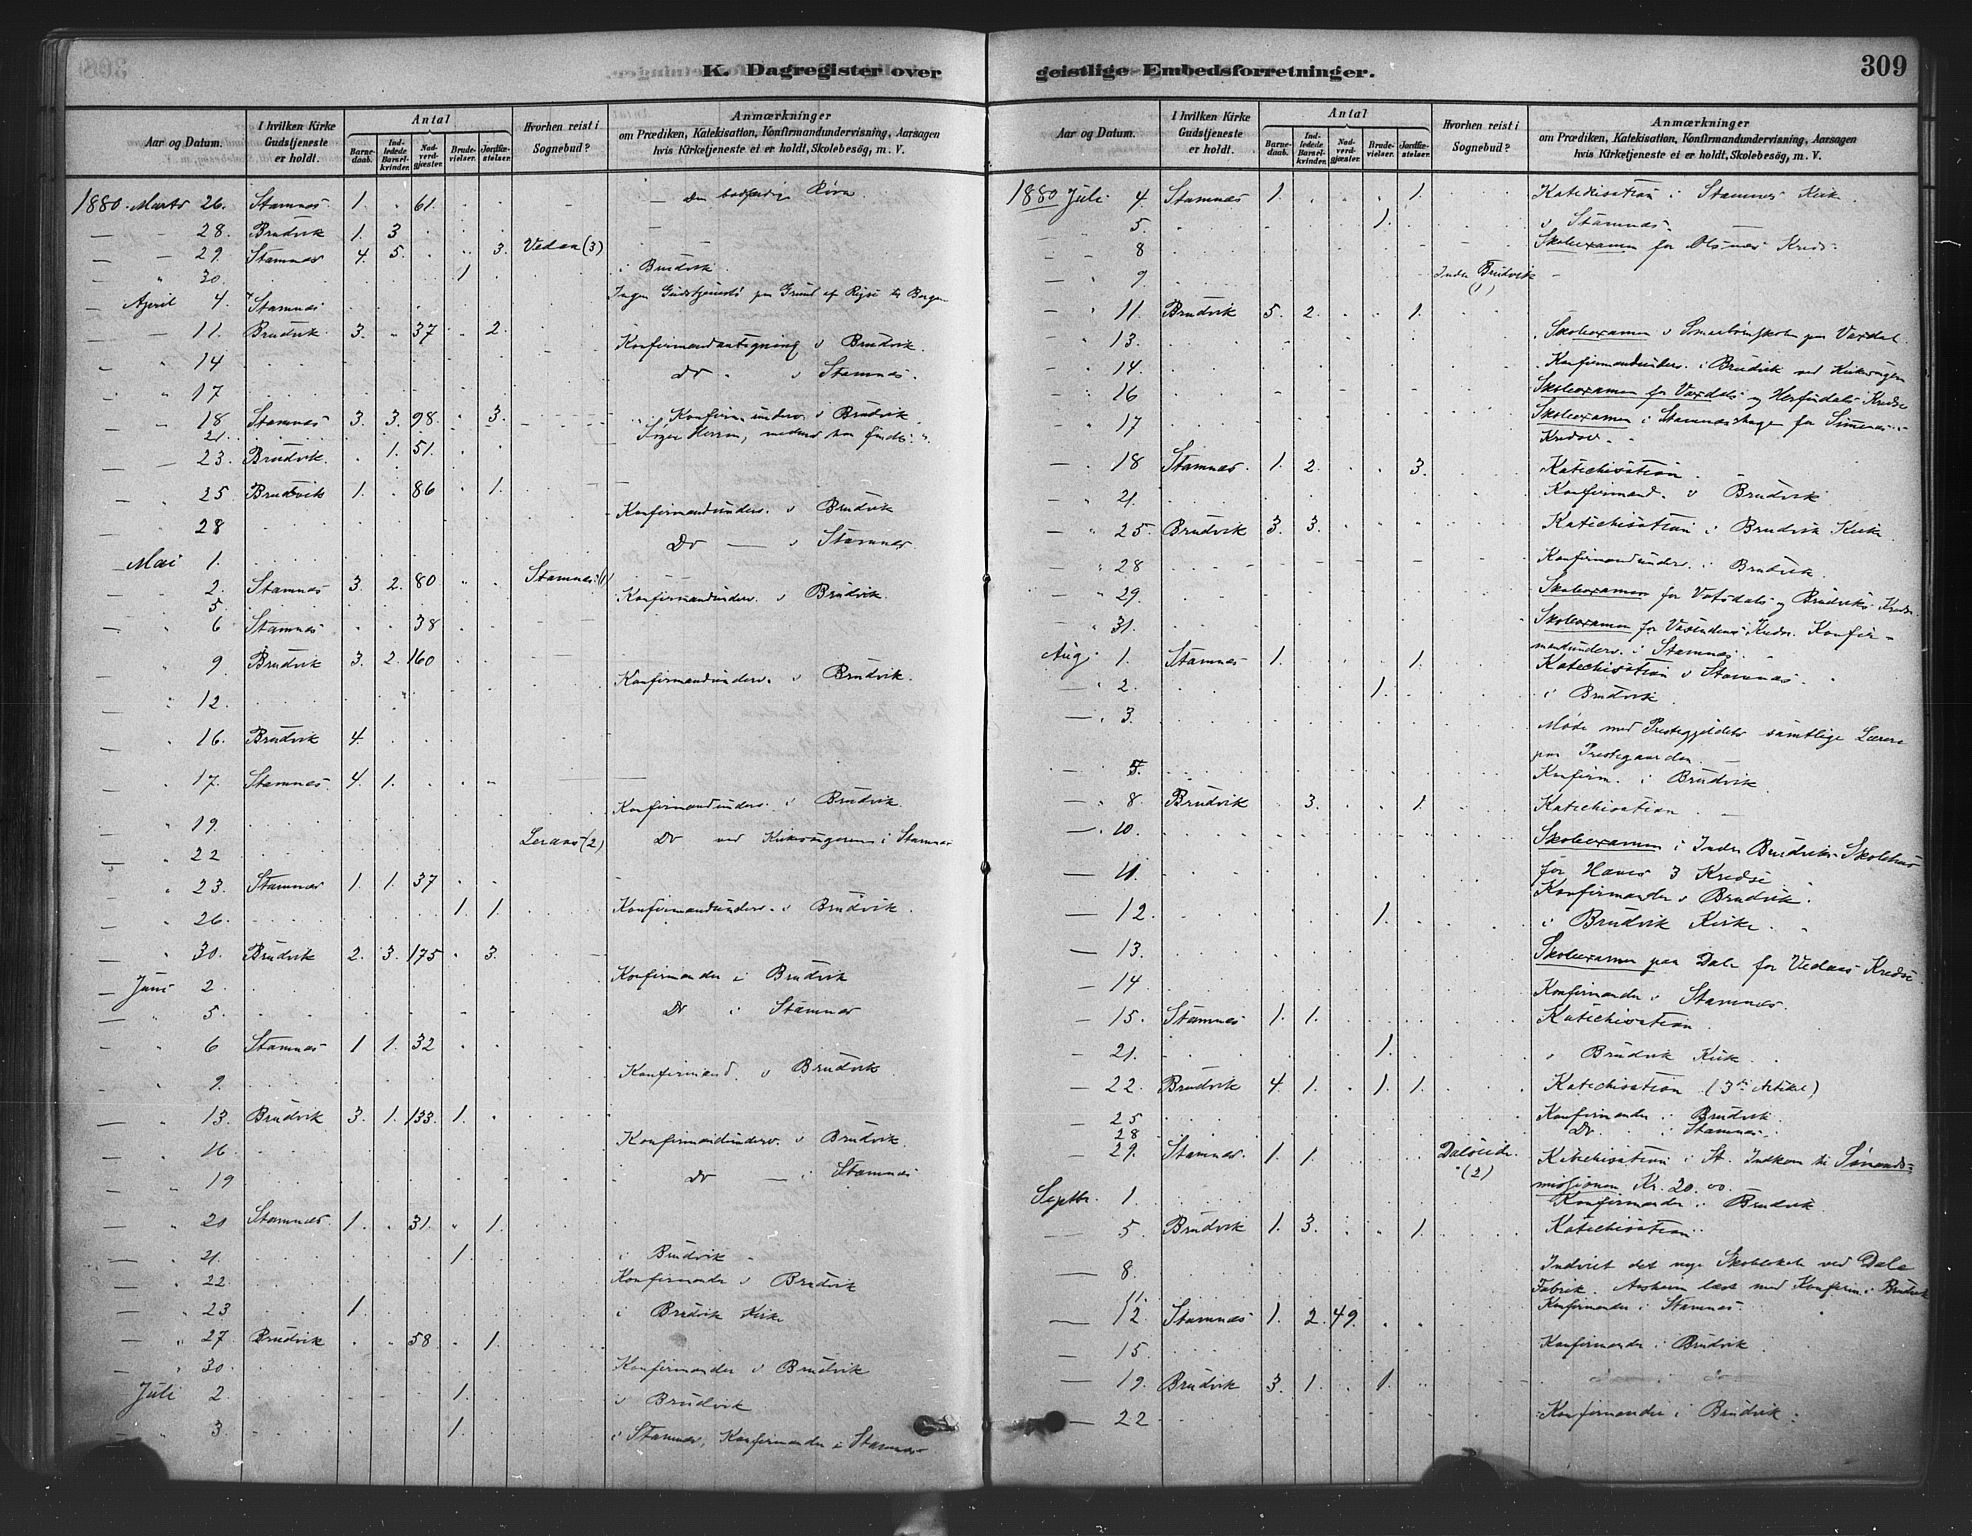 K. Dagregister over geistlige Embedsforretninger. 309
Aar og Datum. I hvilken Kirke Gudstjeneste er holdt. Antal Barnedaab. Indledede Barselkvinder. Nadverdgjæster. Brudevielser. Jordfæstelser. Hvorhen reist i Sognebud? Anmærkninger om Prædiken, Katekisation, Konfirmandundervisning, Aarsagen hvis Kirketjeneste ei er holdt, Skolebesøg, m. V.
1880 Marts 26. Stamnæs 1. " 61.
28. Brudvik 1. 3
29. Stamnæs 4. 5. 3. Vedaa (3)
30. 1 i Brudvik
April 4. Stamnæs Ingen Gudstjeneste paa Grund af Rejse til Bergen
11. Brudvik 3. " 37. " 2.
14 Konfirmandantegning i Brudvik.
17. Do " i Stamnæs.
18 Stamnæs 3. 3. 98. " 3.
21. Konfirm.underv. i Brudvik
23. Brudvik. 1. 51. Søger Herren, medens han findes
25 Brudvik 1. " 86 1.
28 Konfirmandunderv. i Brudvik
Mai 1. Do — i Stamnæs
2. Stamnæs 3. 2. 80 Stamnæs (1)
5. Konfirmandunderv. i Brudvik.
6 Stamnæs 38
9. Brudvik 3. 2. 160
12. Konfirmandunderv. i Brudvik.
16. Brudvik 4.
17. Stamnæs. 4. 1.
19. Konfirmandunderv. i Brudvik.
22 (2) Do ved Kirkesangeren i Stamnæs
23. Stamnæs 1. 1. 37
26. 1. 1. Konfirmandunderv. i Brudvik.
30. Brudvik 2. 3. 175 " 3.
Juni 2. Konfirmander i Brudvik
5. Do i Stamnæs
6 Stamnæs 1 1. 32
9. Konfirmand. i Brudvik
13. Brudvik 3. 1. 133. 1.
16. Konfirmandunderv. i Brudvik
19 Do — i Stamnæs
20 Stamnæs. 1. 31. 1.
21. 1. i Brudvik
22. Konfirmander i Brudvik
23 1. i Brudvik Kirke
27 Brudvik 58 1.
30. Konfirmander i Brudvik
Juli 2 1. i Brudvik
3. 1. i Stamnæs, Konfirmander i Stamnæs
Aar og Datum. I hvilken Kirke Gudstjeneste er holdt. Antal Barnedaab. Indledede Barselkvinder. Nadverdgjæster. Brudevielser. Jordfæstelser. Hvorhen reist i Sognebud? Anmærkninger om Prædiken, Katekisation, Konfirmandundervisning, Aarsagen hvis Kirketjeneste ei er holdt, Skolebesøg, m. V.
1880 Juli 4 Stamnæs 1. 1. Katekisation i Stamnæs Kirke.
5. 1. i Stamnæs.
8 Skoleexamen for Kreds.
9 Indre Brudvik (1)
11. Brudvik 5. 2. 1.
13. Skoleexamen i Smaabørnskolen paa Vaxdal.
14. Konfirmandunderv. i Brudvik ved Kirkesangeren
16 Skoleexamen for Vaxdals og Herfindals Kredse
17. Skoleexamen i for Simenæs
Kredse.
18 Stamnæs. 1. 2. 3. Katechisation.
21. Konfirmand. i Brudvik
25. Brudvik 3. 3. Katechisation i Brudvik Kirke
28 Konfirmandunderv. i Brudvik.
29. Skoleexamen for og Brudviks Kredse.
31. Skoleexamen for Kredse. Konfir-
mandunderv. i Stamnæs.
Aug. 1. Stamnæs 1. 1. Katechisation i Stamnæs
2. 1. i Brudvik
3. Møde med Prestegjeldets samtlige Lærere
paa Prestegaarden
5. Konfirm. i Brudvik
8. Brudvik 3. 1. Katechisation
10. Skoleexamen i Indre Brudviks Skolehus
for 3 Kredse
11. Konfirmander i Brudvik.
12. 1. i Brudvik Kirke
13. Skoleexamen paa Dale for Vedaas Kredse
14 Konfirmander i Stamnæs
15. Stamnæs 1. 1. Katechisation
21. 1. i Brudvik Kirke
22. Brudvik 4. 1. 1. 1. Katechisation (3die Artikel)
25 Konfirmander i Brudvik
28 Do i Stamnæs
29. Stamnæs. 1. 1. Dalseide (2) Katechisation i St. Indkom til Sømands-
missionen Kr. 20.00.
Septbr. 1. Konfirmander i Brudvik
5. Brudvik 1. 3. 1. Katechisation
8. Indviet det nye Skolelokale ved Dale
Fabrik. læst med Konfirm. i Brudvik
11. Konfirmander i Stamnæs
12 Stamnæs 1. 2. 49.
15 Konfirmander i Brudvik
19. Brudvik 3. 1. 1.
22 Konfirmander i Brudvik